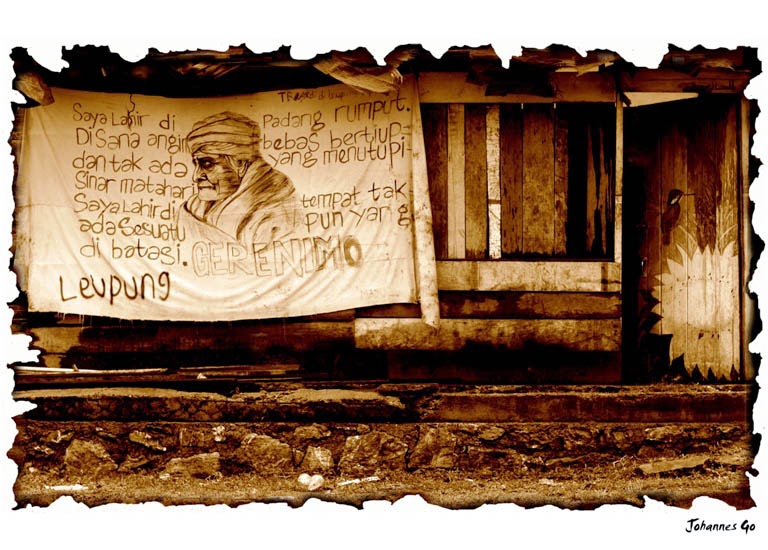 Saya Lahir di Padang rumput.
Di Sana angin bebas bertiup
dan tak ada yang menutupi
Sinar matahari
Saya Lahir di tempat tak
ada Sesuatu pun yang
di batasi.
GERENIMO
Leupung
Johannes Go